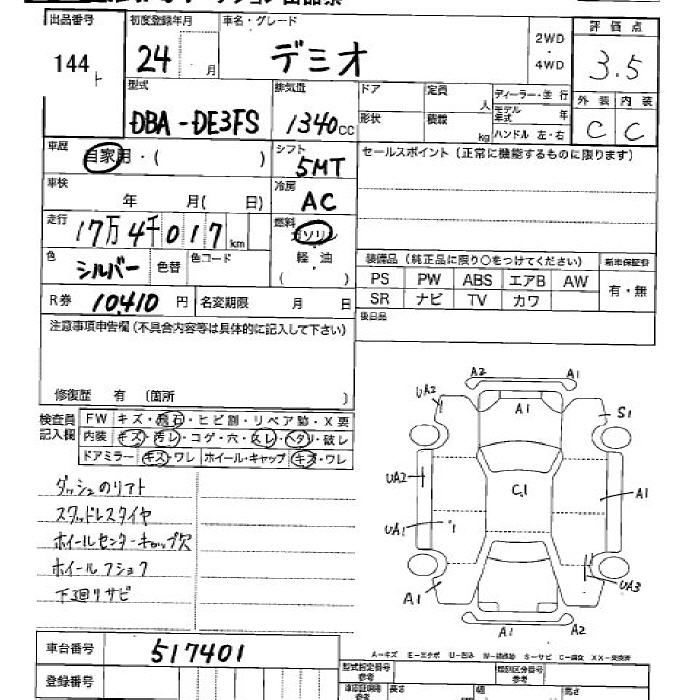 出品番号 初度登録年月 車名・グレード 評価点
144ト 24 月 デミオ 2WD・4WD 3.5
型式 排気量 ドア 定員 人 ディーラー・並行 外装 内装
DBA-DE3FS 1340cc 形状 積載 kg モデル年式 年 ハンドル 左・右 C C
車歴 自家用・( ) シフト 5MT セールスポイント (正常に機能するものに限ります)
車検 年 月( 日) 冷房 AC
走行 17万4千017km 燃料 ガソリン・軽油
色 シルバー 色替 色コード 装備品 (純正品に限り○をつけてください) 新車保証書
PS PW ABS エアB AW 有・無
R券 10,410円 名変期限 月 日 SR ナビ TV カワ
注意事項申告欄 (不具合内容等は具体的に記入して下さい) 後日品
修復歴 有 (箇所 )
検査員記入欄 FW キズ・飛石・ヒビ割・リペア跡・X要
内装 キズ・汚レ・コゲ・穴・スレ・ヘタリ・破レ
ドアミラー キズ・ワレ ホイール・キャップ キズ・ワレ
ダッシュのリフト
スタッドレスタイヤ
ホイールセンターキャップ欠
ホイールフショク
下廻リサビ
A2 A1
UA2 A1 S1
UA2 C1 A1
UA1 1
A1 UA3
A1 A2
A-キズ E-エクボ U-凹み W-補修跡 S-サビ C-腐食 XX-交換済
車台番号 517401 型式指定番号 参考 類別区分番号 参考
登録番号 車検証明書 参考 長さ 幅 高さ